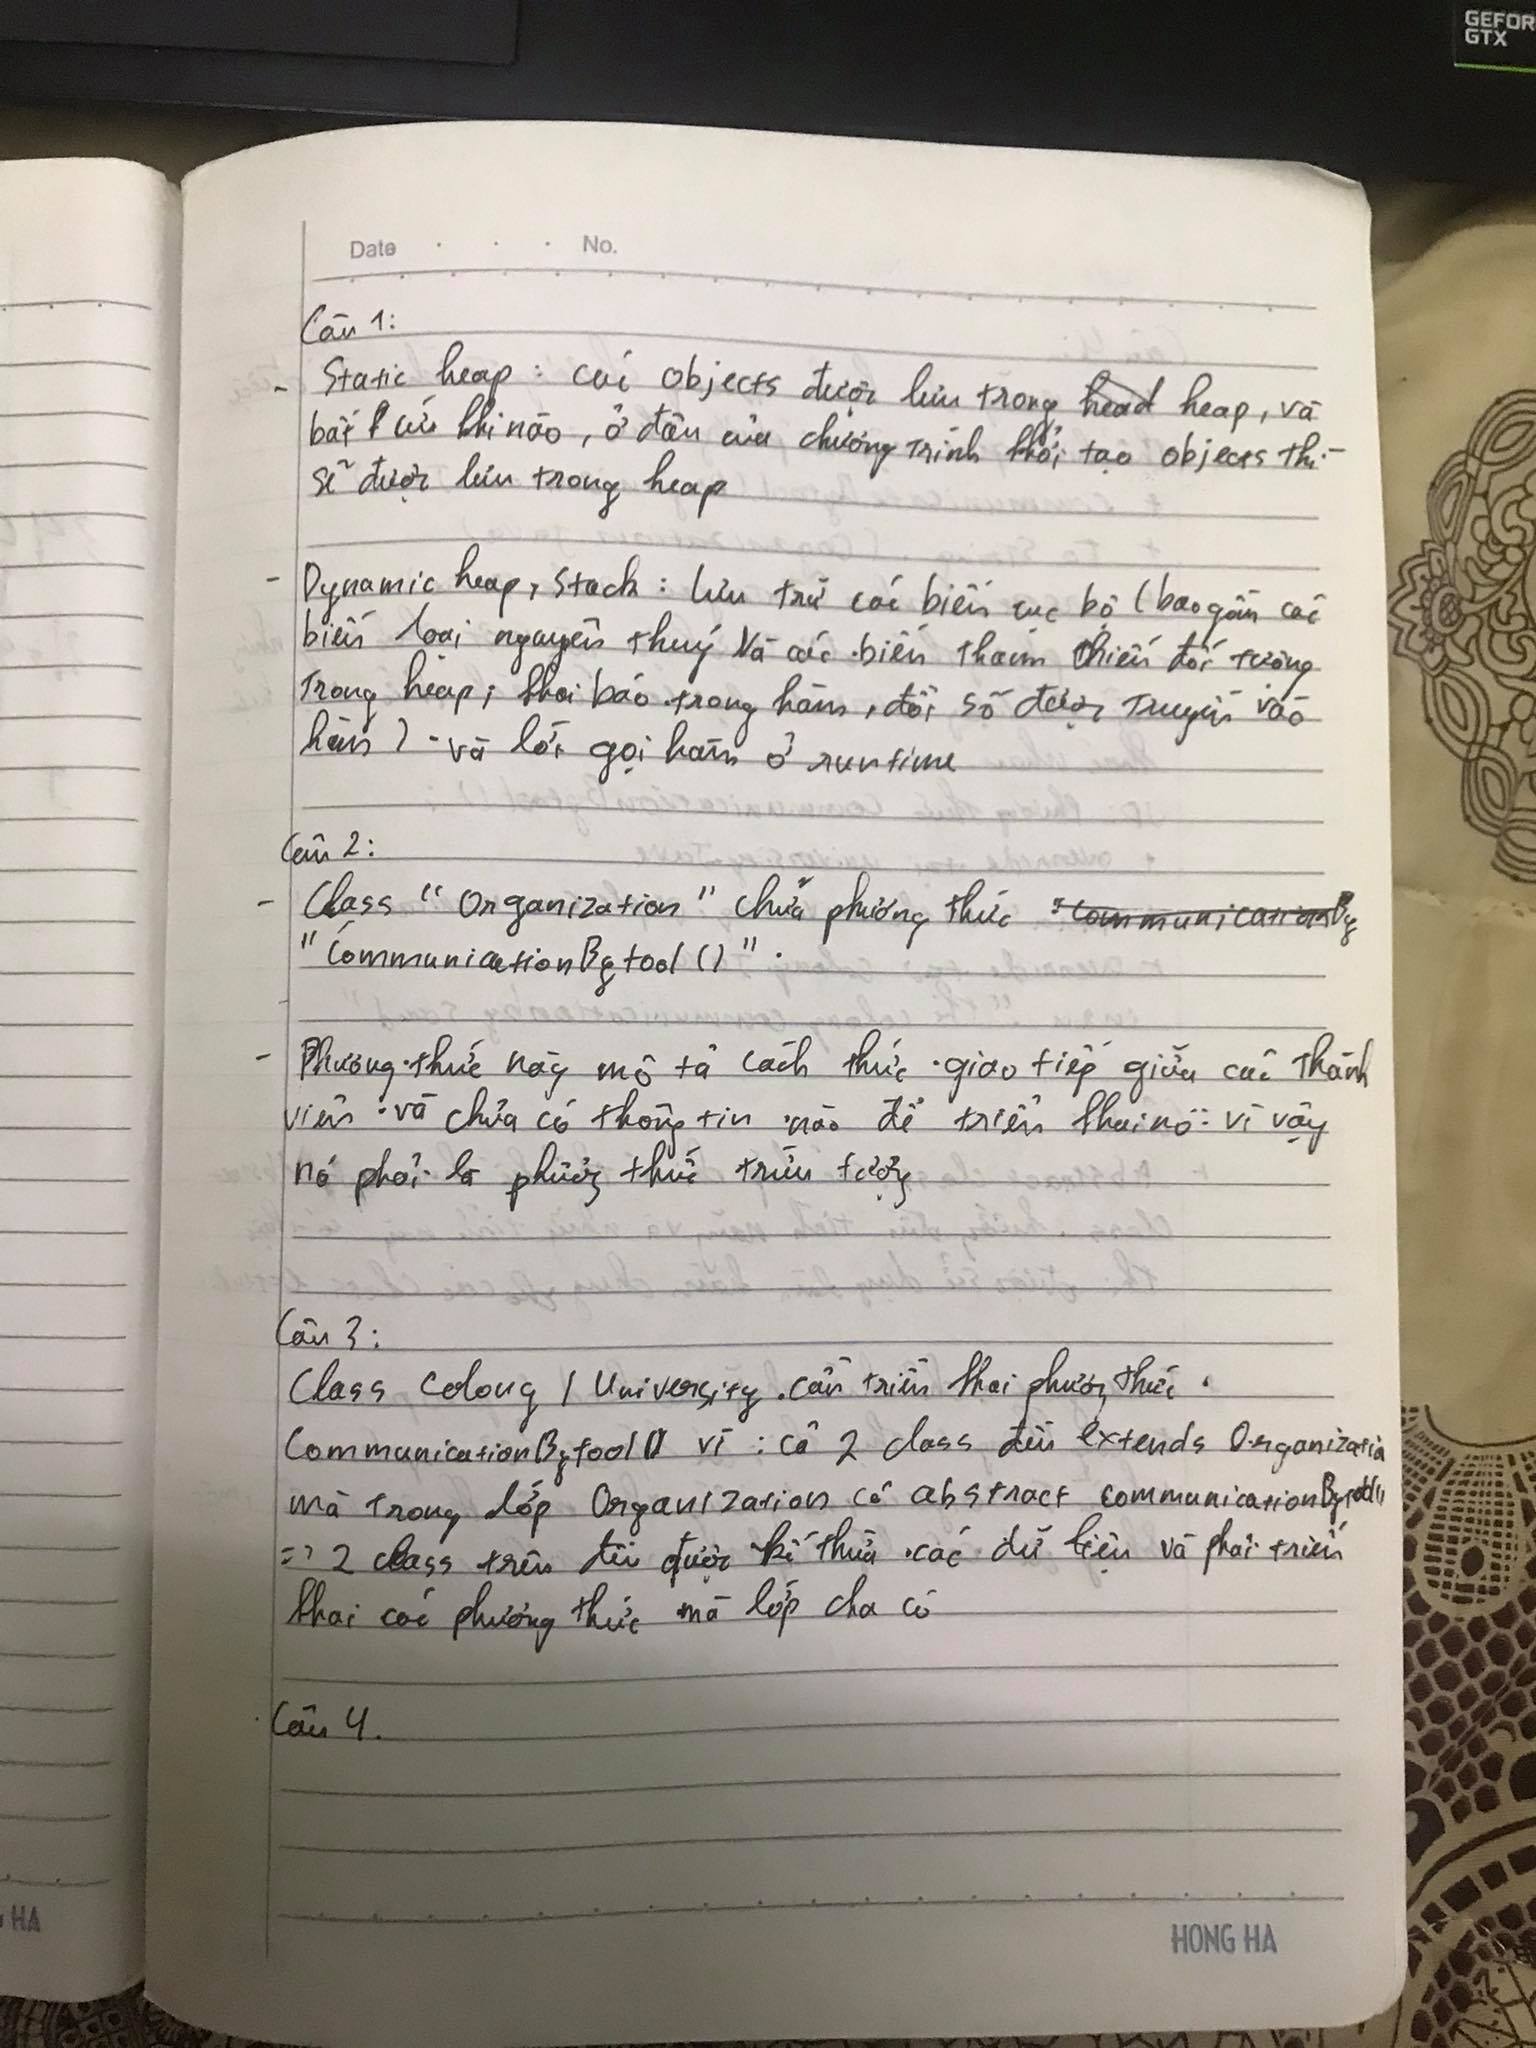 GEFOR
GTX
Date . . . No.
Câu 1:
- Static heap : các objects được lưu trong head heap, và
bất cứ khi nào, ở đâu của chương trình khởi tạo objects thì
sẽ được lưu trong heap
- Dynamic heap, stack : lưu trữ các biến cục bộ (bao gồm các
biến loại nguyên thuỷ và các biến tham chiếu đối tượng
trong heap, khai báo trong hàm, đối số được truyền vào
hàm) và lời gọi hàm ở runtime
Câu 2:
- Class "Organization" chứa phương thức "communicationBy
"CommunicationBytool()".
- Phương thức này mô tả cách thức giao tiếp giữa các thành
viên và chưa có thông tin nào để triển khai nó vì vậy
nó phải là phương thức trừu tượng
Câu 3:
Class Colony / University cần triển khai phương thức
CommunicationBytool() vì : cả 2 class đều extends Organization
mà trong lớp Organization có abstract communicationBytool()
=> 2 class trên đều được kế thừa các dữ liệu và phải triển
khai các phương thức mà lớp cha có
Câu 4.
HA
HONG HA